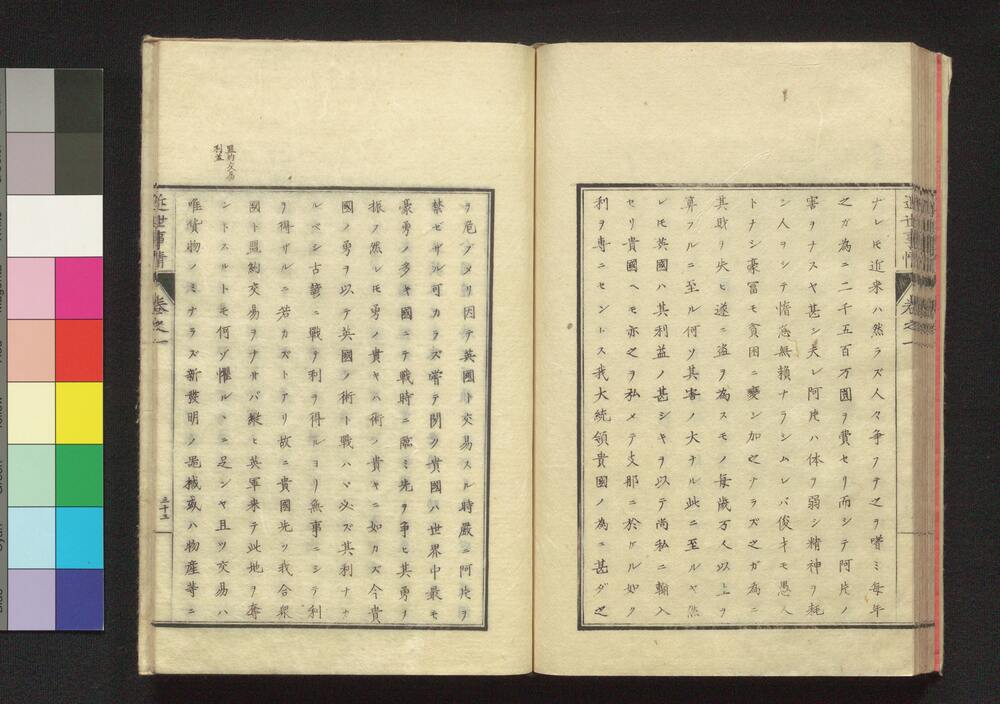 ナレ𪜈近来ハ然ラズ人々争フテ之ヲ嗜ミ毎年
之ガ為ニ二千五百万圓ヲ費セリ而シテ阿片ノ
害ヲナスヤ甚シ夫レ阿片ハ体ヲ弱シ精神ヲ耗
シ人ヲシテ惰怠無頼ナラシムレバ俊才モ愚人
トナシ豪冨モ貧困ニ變シ加之ナラズ之ガ為ニ
其財ヲ失ヒ遂ニ盗ヲ為スモノ毎歳万人以上ヲ
算フルニ至ル何ソ其害ノ大ナル此ニ至ルヤ然
レ𪜈英國ハ其利益ノ甚シキヲ以テ尚私ニ輸入
セリ貴國ヘモ亦之ヲ私メテ支那ニ於ケル如ク
利ヲ専ニセントス我大統領貴國ノ為ニ甚ダ之
近世事情
巻之一
盟約交易
利益
ヲ危ブメリ因テ英國ト交易スル時嚴ニ阿片ヲ
禁ゼザル可カラズ嘗テ聞ク貴國ハ世界中最モ
豪勇ノ多キ國ニテ戦時ニ臨ミ先ヲ争ヒ其勇ヲ
振フ然レ𪜈勇ノ貴キハ術ノ貴キニ如カズ今貴
國ノ勇ヲ以テ英國ノ術ト戰ハヾ必ズ其利ナカ
ルベシ古諺ニ戰ヲ利ヲ得ルヨリ無事ニシテ利
ヲ得ザルニ若カズトアリ故ニ貴國先ツ我合衆
國ト盟約交易ヲナサバ縦ヒ英軍来テ此地ヲ奪
ントスルトモ何ゾ懼ルヽニ足ンヤ且ツ交易ハ
唯貨物ノミナラズ新發明ノ噐械或ハ物産等ニ
近世事情
巻之一
三十二